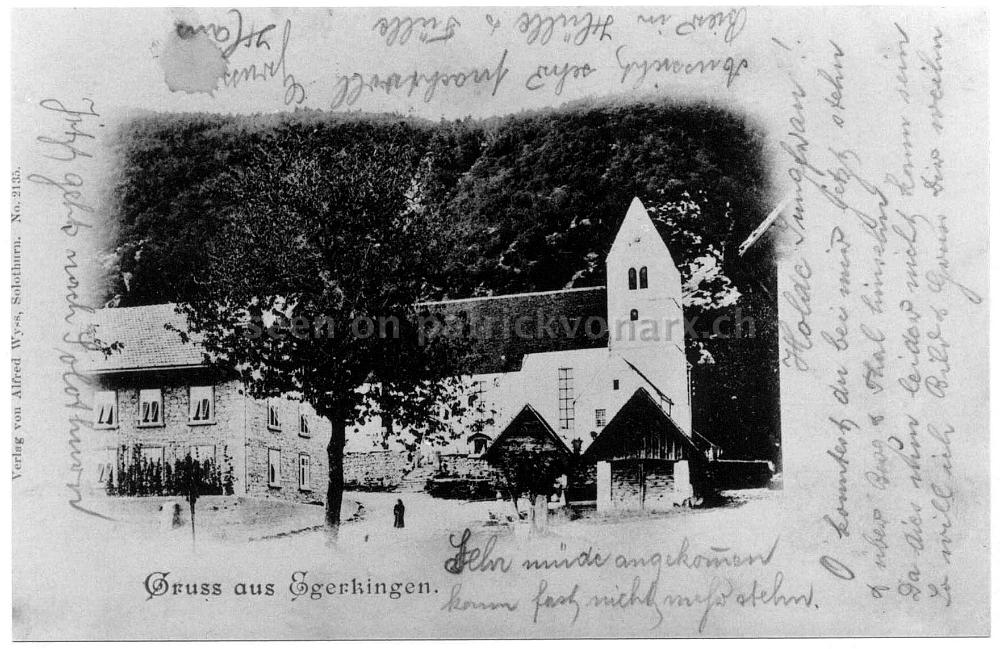 Aussicht sehr prachtvoll
hier in Hülle & Fülle
Gruss
Hans
Jetzt geht nach Solothurn
Verlag von Alfred Wyss, Solothurn. No. 2135.
seen on patrickvonarx.ch
Holde Jungfrau!
O könntest du bei mir jetzt stehn
& über Berg & Thal hinsehn
Da dies nun leider nicht kann sein
So will ich Bild & Gruss Dir weihn
Gruss aus Egerkingen.
Sehr müde angekom̅en
kann fast nicht mehr stehn.